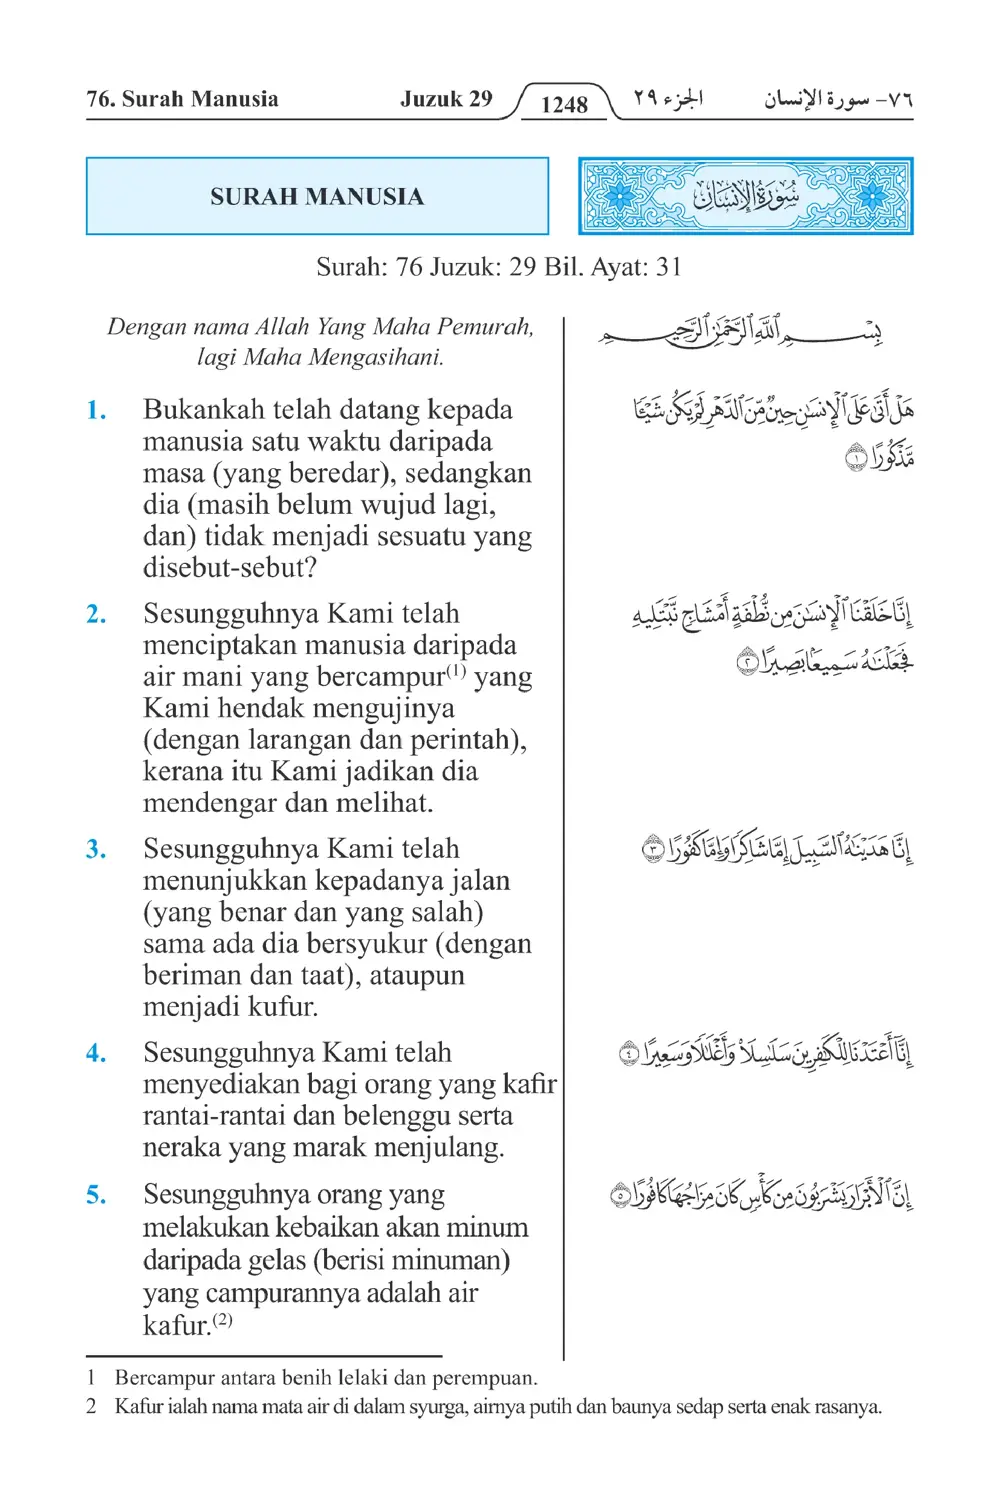 76. Surah Manusia Juzuk 29 1248 الجزء ٢٩ ٧٦- سورة الإنسان
SURAH MANUSIA
سُورَةُ الإِنسَان
Surah: 76 Juzuk: 29 Bil. Ayat: 31
Dengan nama Allah Yang Maha Pemurah,
lagi Maha Mengasihani.
بِسْمِ ٱللَّهِ ٱلرَّحْمَٰنِ ٱلرَّحِيمِ
1. Bukankah telah datang kepada
manusia satu waktu daripada
masa (yang beredar), sedangkan
dia (masih belum wujud lagi,
dan) tidak menjadi sesuatu yang
disebut-sebut?
هَلْ أَتَىٰ عَلَى ٱلْإِنسَٰنِ حِينٌ مِّنَ ٱلدَّهْرِ لَمْ يَكُن شَيْـًٔا
مَّذْكُورًا ١
2. Sesungguhnya Kami telah
menciptakan manusia daripada
air mani yang bercampur(1) yang
Kami hendak mengujinya
(dengan larangan dan perintah),
kerana itu Kami jadikan dia
mendengar dan melihat.
إِنَّا خَلَقْنَا ٱلْإِنسَٰنَ مِن نُّطْفَةٍ أَمْشَاجٍ نَّبْتَلِيهِ
فَجَعَلْنَٰهُ سَمِيعًۢا بَصِيرًا ٢
3. Sesungguhnya Kami telah
menunjukkan kepadanya jalan
(yang benar dan yang salah)
sama ada dia bersyukur (dengan
beriman dan taat), ataupun
menjadi kufur.
إِنَّا هَدَيْنَٰهُ ٱلسَّبِيلَ إِمَّا شَاكِرًا وَإِمَّا كَفُورًا ٣
4. Sesungguhnya Kami telah
menyediakan bagi orang yang kafir
rantai-rantai dan belenggu serta
neraka yang marak menjulang.
إِنَّآ أَعْتَدْنَا لِلْكَٰفِرِينَ سَلَٰسِلَا۟ وَأَغْلَٰلًا وَسَعِيرًا ٤
5. Sesungguhnya orang yang
melakukan kebaikan akan minum
daripada gelas (berisi minuman)
yang campurannya adalah air
kafur.(2)
إِنَّ ٱلْأَبْرَارَ يَشْرَبُونَ مِن كَأْسٍ كَانَ مِزَاجُهَا كَافُورًا ٥
1 Bercampur antara benih lelaki dan perempuan.
2 Kafur ialah nama mata air di dalam syurga, airnya putih dan baunya sedap serta enak rasanya.